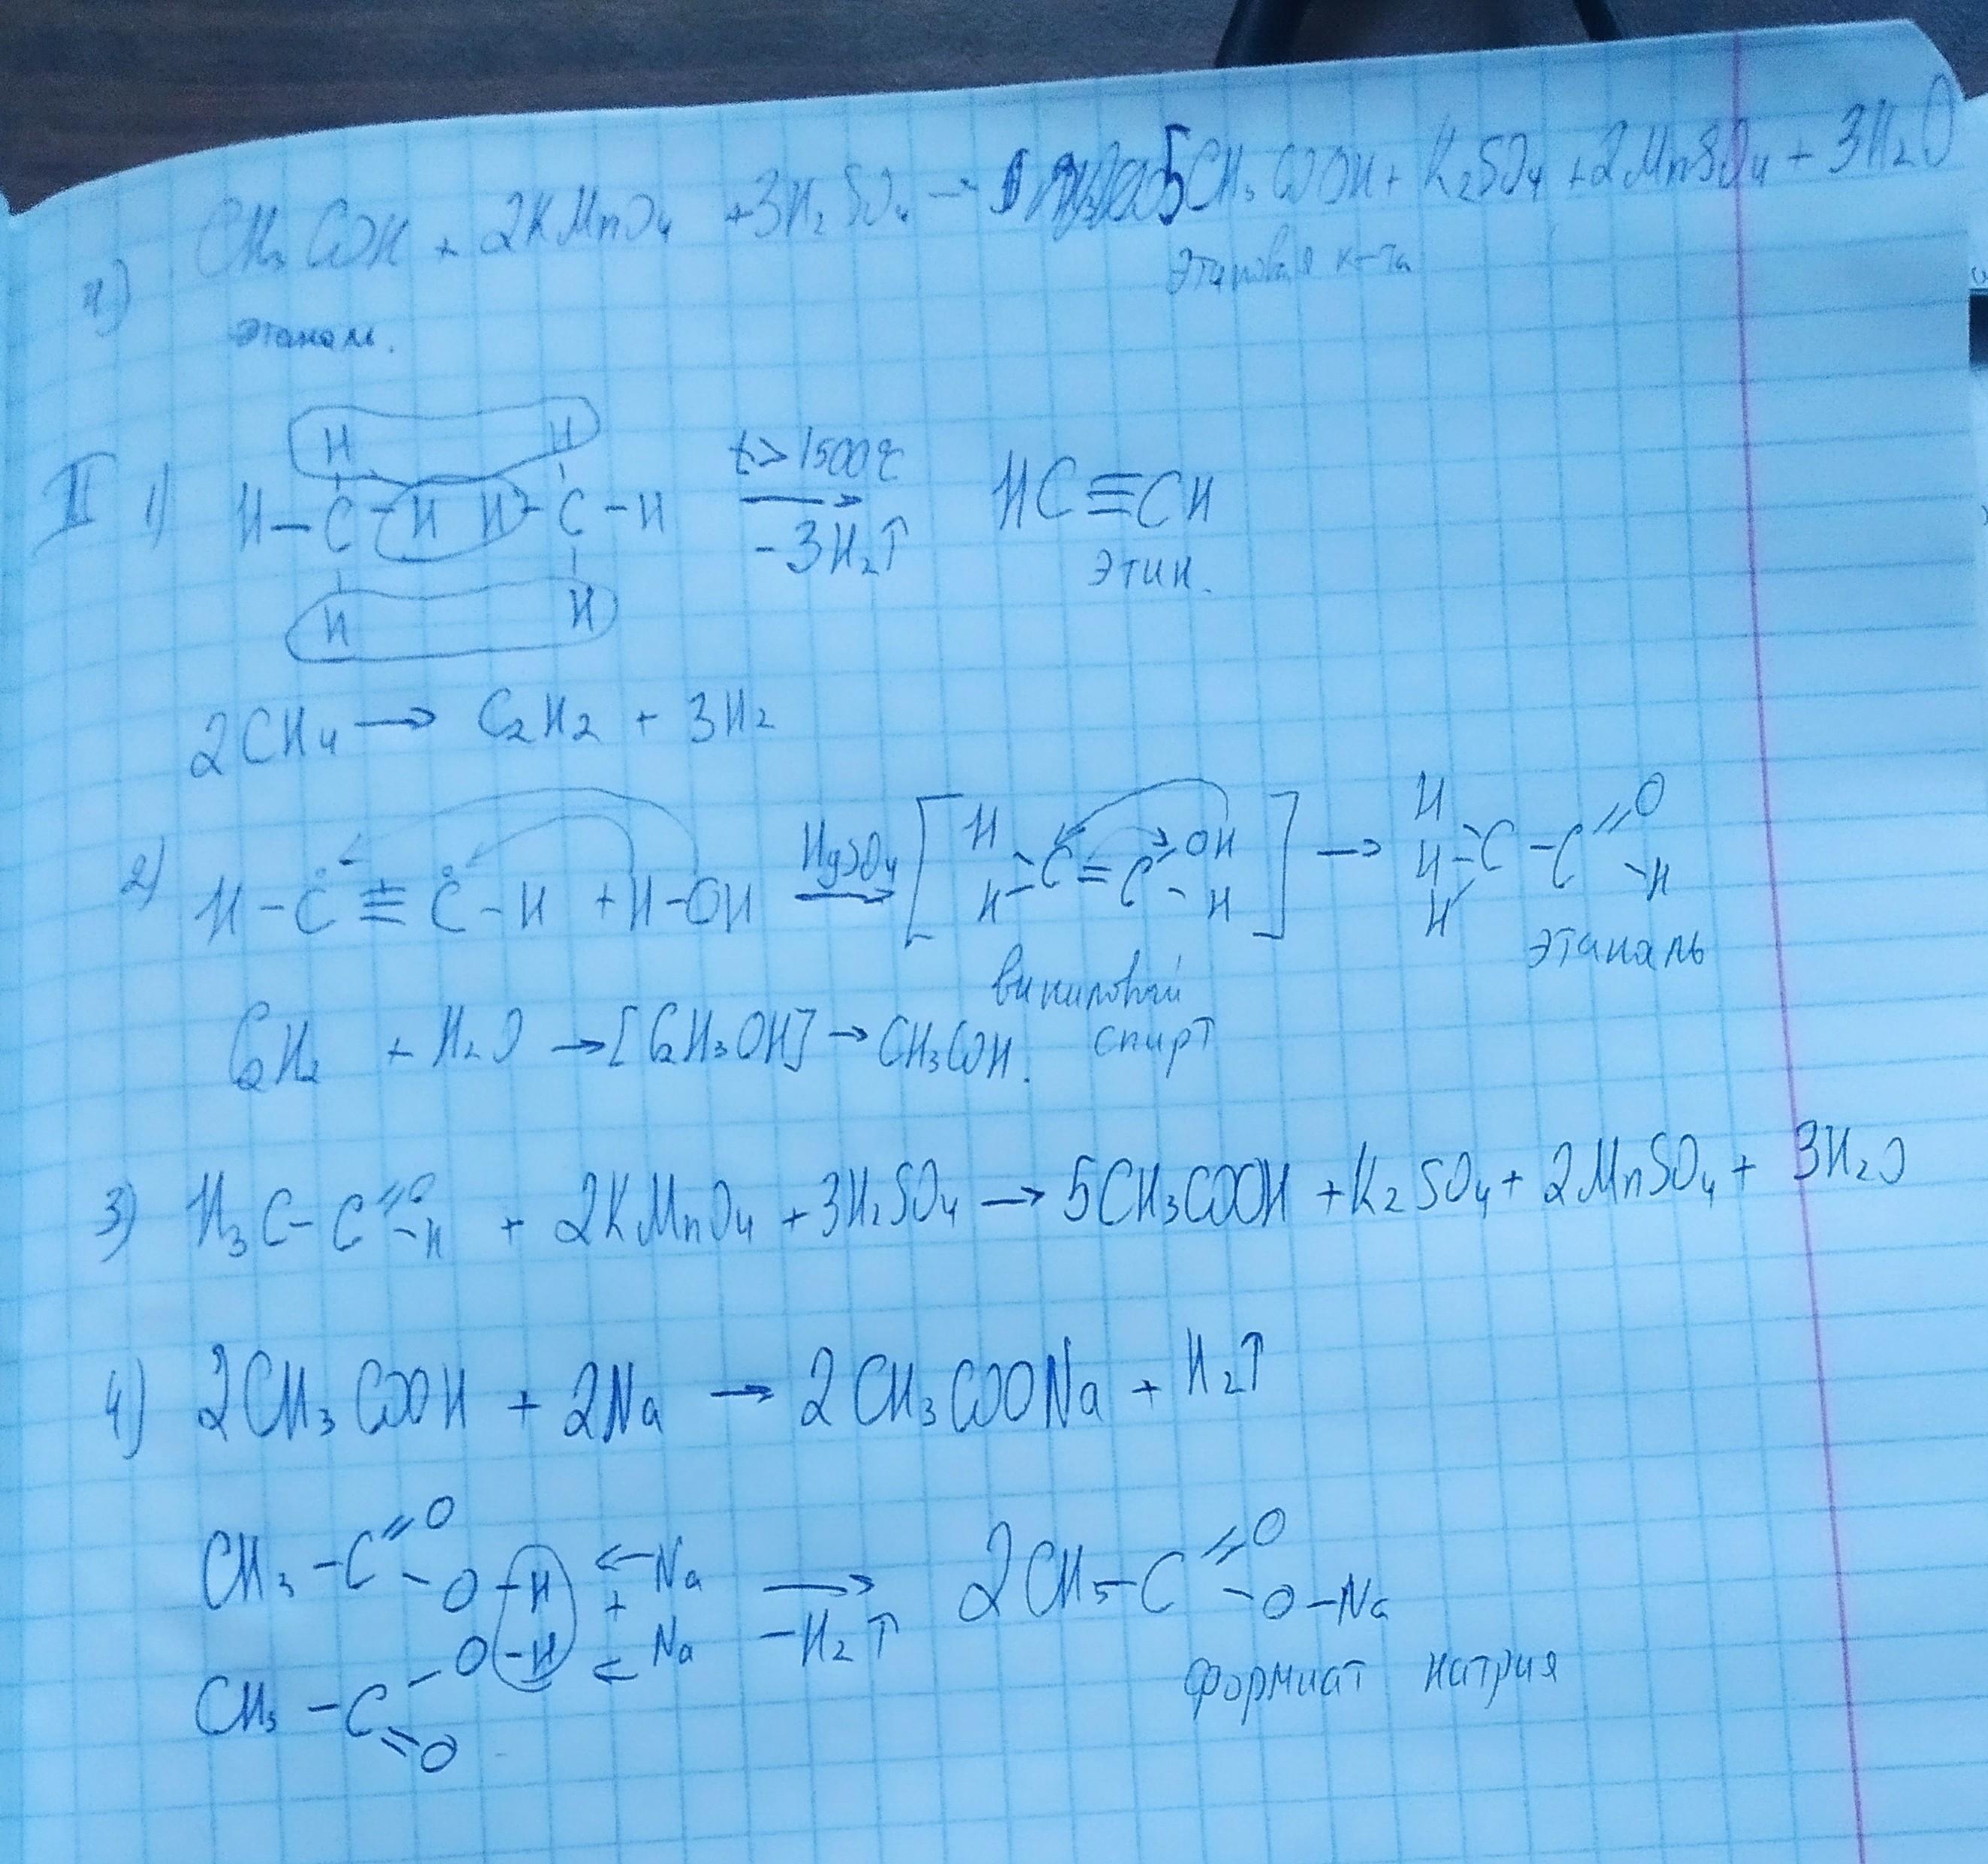 4) CH₃COH + 2KMnO₄ + 3H₂SO₄ → 5CH₃COOH + K₂SO₄ + 2MnSO₄ + 3H₂O
этаналь. этановая к-та
H H
II 1) H–C–H H–C–H t>1500°C –3H₂↑ HC≡CH
H H этин.
2CH₄ → C₂H₂ + 3H₂
H OH H O
2) H–C≡C–H + H–OH HgSO₄ → [ C=C ] → H–C–C
H H H H
виниловый спирт этаналь
C₂H₂ + H₂O → [C₂H₃OH] → CH₃COH.
3) H₃C–C=O–H + 2KMnO₄ + 3H₂SO₄ → 5CH₃COOH + K₂SO₄ + 2MnSO₄ + 3H₂O
4) 2CH₃COOH + 2Na → 2CH₃COONa + H₂↑
CH₃–C=O O–H ← Na → 2CH₃–C=O O–Na
+ –H₂↑
CH₃–C=O O–H ← Na формиат натрия